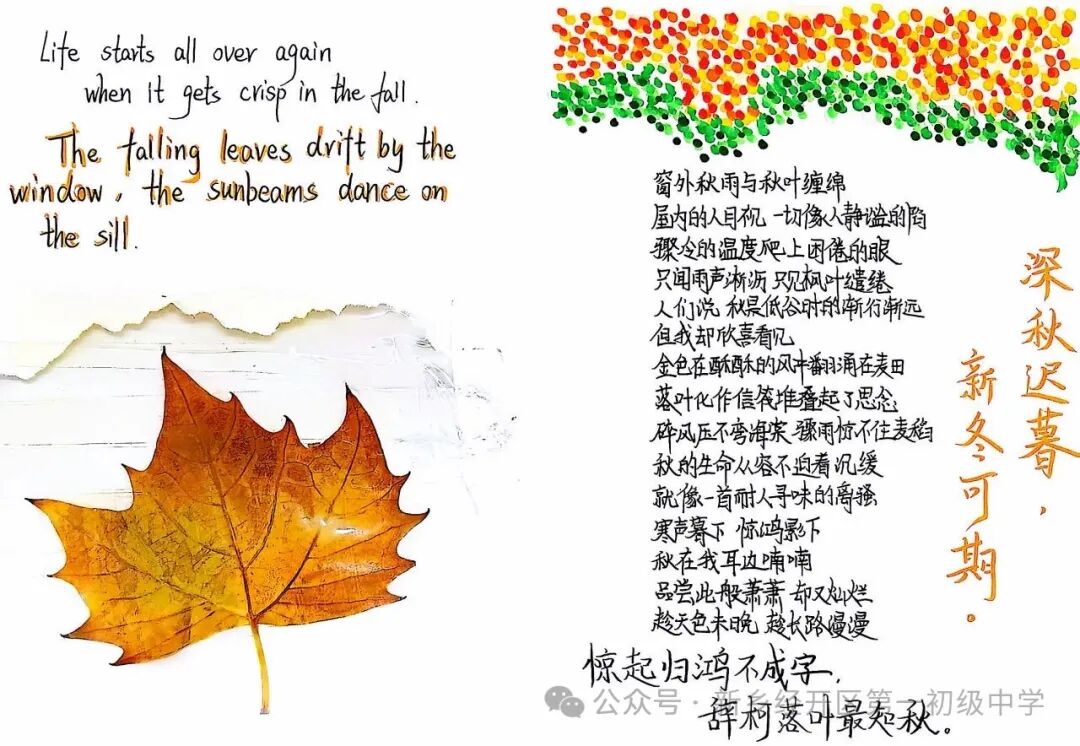 Life starts all over again
when it gets crisp in the fall.
The falling leaves drift by the
window, the sunbeams dance on
the sill.
窗外秋雨与秋叶缠绵
屋内的人目视 一切像人静谧的陷
骤冷的温度爬上困倦的眼
只闻雨声淅沥 只见枫叶缱绻
人们说 秋是低谷时的渐行渐远
但我却欣喜看见
金色在酥酥的风中翻涌在麦田
落叶化作信笺堆叠起了思念
碎风压不弯海棠 骤雨惊不住麦稻
秋的生命从容不迫着沉缓
就像一首耐人寻味的离骚
寒声暮下 惊鸿影下
秋在我耳边喃喃
品尝此般萧萧 却又灿烂
趁天色未晚 趁长路漫漫
深秋迟暮,
新冬可期。
惊起归鸿不成字,
辞柯落叶最知秋。
公众号·新乡经开区第一初级中学